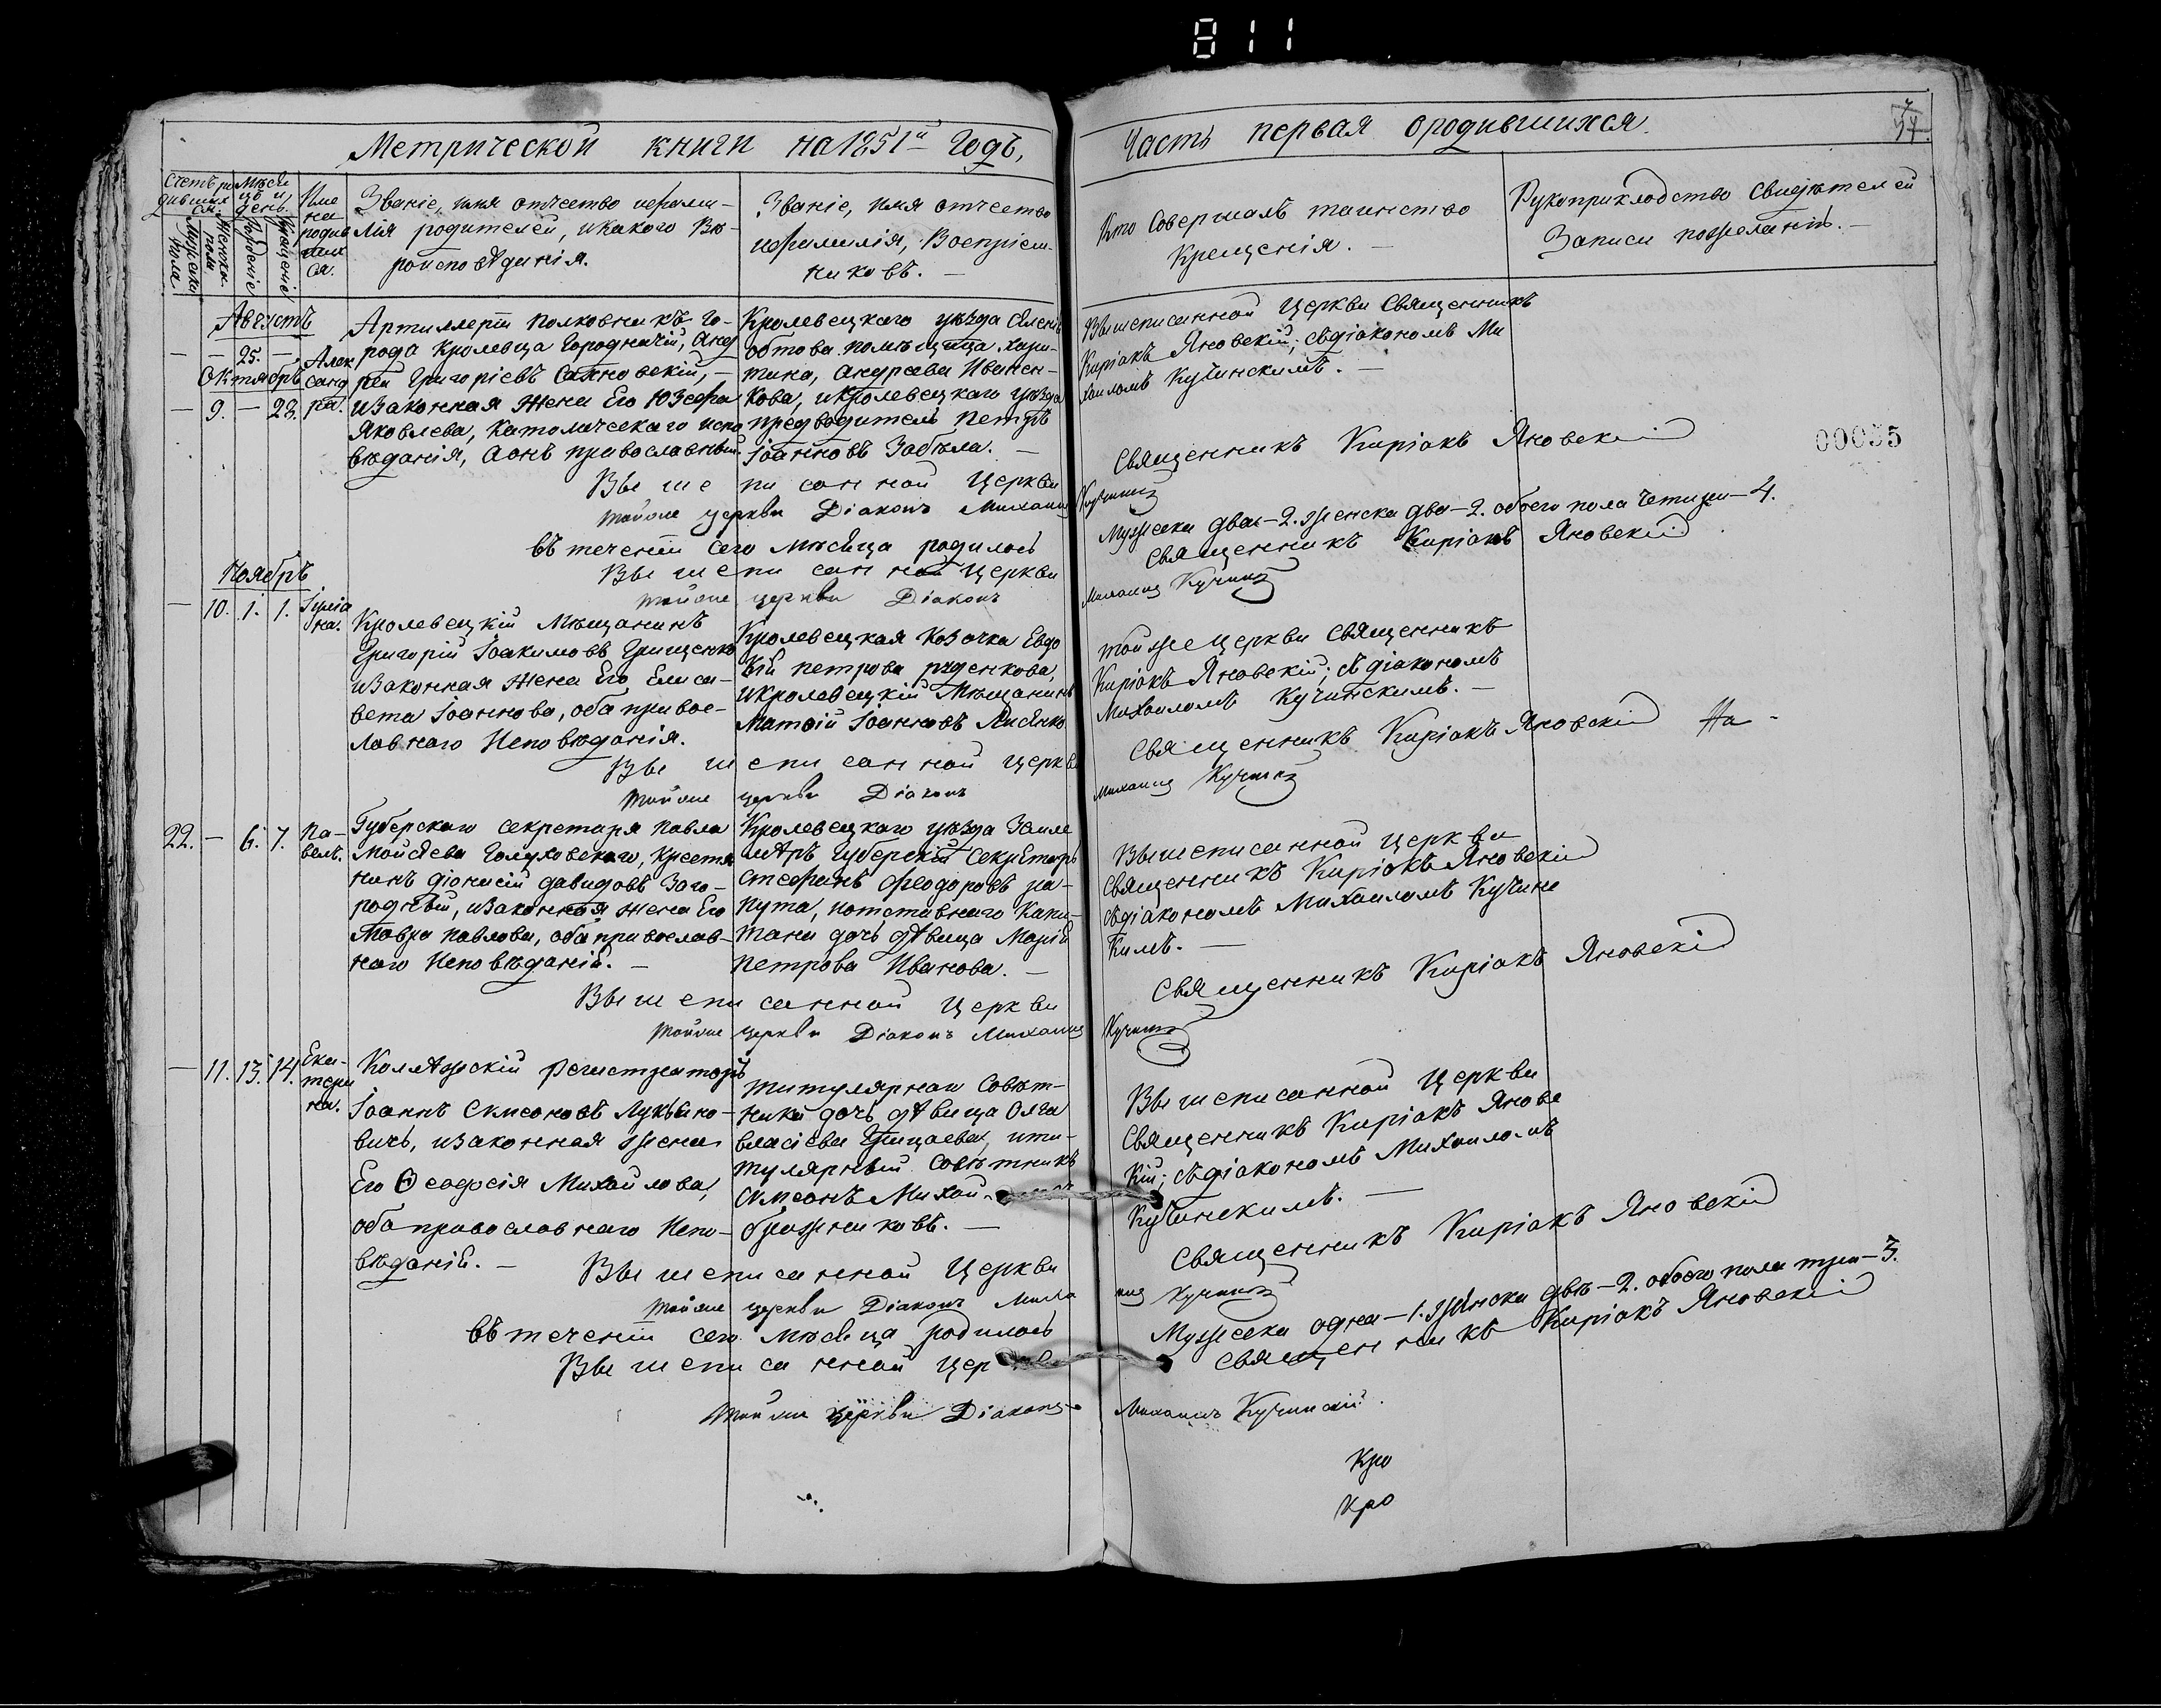 811
Метрической книги на 1851й Годъ,
Часть первая ородившихся.
Счетъ ро
дивших
ся.
Мужеска
пола
Женска
пола
Мѣся
цъ и
день.
Рожденіе
Крещеніе
Име
на
родив
ших
ся.
Званіе, имя отчество ифами-
лія родителей, икакого Вѣ-
роисповѣданія.
Званіе, имя отчество
ифамилія, Воспріем-
никовъ. —
Кто Совершалъ таинство
Крещенія. —
Рукоприкладство Свидѣтелей
Записи пожеланію. —
Августъ
— — 25. —
Октябрь
— 9. — 28.
Алек
санд
ра.
Артиллеріи полковникъ го-
рода Кролевца Городничій, Анд
рей Григоріевъ Сахновскій, —
изаконная жена Его Юзефа
Яковлева, Католическаго испо
вѣданія, Аонъ православный.
Кролевецкаго уѣзда
помѣщица, хари-
тина, Андреева Иванен-
кова, икролевецкаго уѣзда
предводитель Петръ
Іоанновъ Забѣла. —
Вышеписанной Церкви Священникъ
Киріакъ Яновскій; сдіакономъ Ми
хаиломъ Кучинскимъ. —
Вы ше пи сан ной Церкви
Священникъ Киріакъ Яновскій
00035
тойже церкви Діаконъ Михаилъ
Кучинскій
въ теченіи сего мѣсяца родилось
Мужеска два — 2. женска два — 2. обоего пола четыри — 4.
Вы ше пи сан ной Церкви
Священникъ Киріакъ Яновскій
тойже церкви Діаконъ
Михаилъ Кучинскій
Ноябрь
— 10. 1. 1.
Іуліа
на.
Кролевецкій Мѣщанинъ
Григорій Іоакимовъ Грищенко
изаконная жена Его Елиса-
вета Іоаннова, оба правос-
лавнаго Исповѣданія.
Кролевецкая Козачка Евдо
кія петрова руденкова,
икролевецкій Мѣщанинъ
Матѳій Іоанновъ Лисенко
тойже Церкви Священникъ
Киріакъ Яновскій; съдіакономъ
Михаиломъ Кучинскимъ. —
Вы ше пи сан ной Церкви
Священникъ Киріакъ Яновскій
На -
тойже церкви Діаконъ
Михаилъ Кучинскій
22. — 6. 7.
Па-
велъ.
Губерскаго секретаря павла
Мойсѣева Голуховскаго, крестя
нинъ діонисій давидовъ Заго-
родній, изаконная жена Его
Мавра павлова, оба православ-
наго Исповѣданія. —
Кролевецкаго уѣзда Земле
мѣръ, губерскій Секретарь
Стефанъ Феодоровъ ра-
пута, иотставнаго Капи-
тана дочь дѣвица Марія
петрова Иванова. —
Вышеписанной Церкви
Священникъ Киріакъ Яновскій
съдіакономъ Михаиломъ Кучинс
кимъ. —
Вы ше пи санной Церкви
Священникъ Киріакъ Яновскій
тойже церкви Діаконъ Михаилъ
Кучинскій
— 11. 13. 14.
Ека-
тери
на.
Колѣжскій регистраторъ
Іоаннъ Симеоновъ Лукьяно-
вичь, изаконная жена
Его Ѳеодосія Михайлова,
оба православнаго Испо-
вѣданія. —
титулярнаго Совѣт-
ника дочь дѣвица Олга
власіева Грицаева, ити-
тулярный Совѣтникъ
Симеонъ
Бражниковъ. —
Вышеписанной Церкви
Священникъ Киріакъ Яновс
кій; съдіакономъ Михаиломъ
Кучинскимъ. —
Вы ше пи са нной Церкви
Священникъ Киріакъ Яновскій
тойже церкви Діаконъ Миха
илъ Кучинскій
въ теченіи сего мѣсяца родилось
Мужеска одна — 1. женска двѣ — 2. обоего пола три — 3.
Вы ше пи са нной
Священникъ Киріакъ Яновскій
тойже церкви Діаконъ
Михаилъ Кучинскій.
Кро
Кро